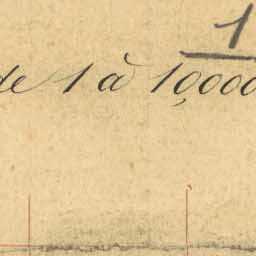 1
de 1 à 10,000